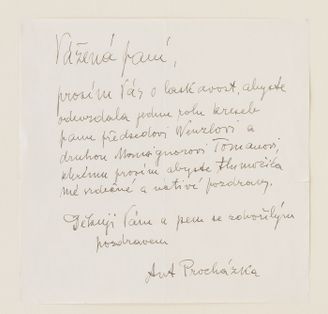 Vážená paní,
prosím Vás o laskavost, abyste
odevzdala jednu roli kreseb
panu předsedovi Wenzlovi a
druhou Monsignorovi Tomanovi,
kterému prosím, abyste tlumočila
mé srdečné a uctivé pozdravy.
Děkuji Vám a jsem se zdvořilým
pozdravem
Ant Procházka